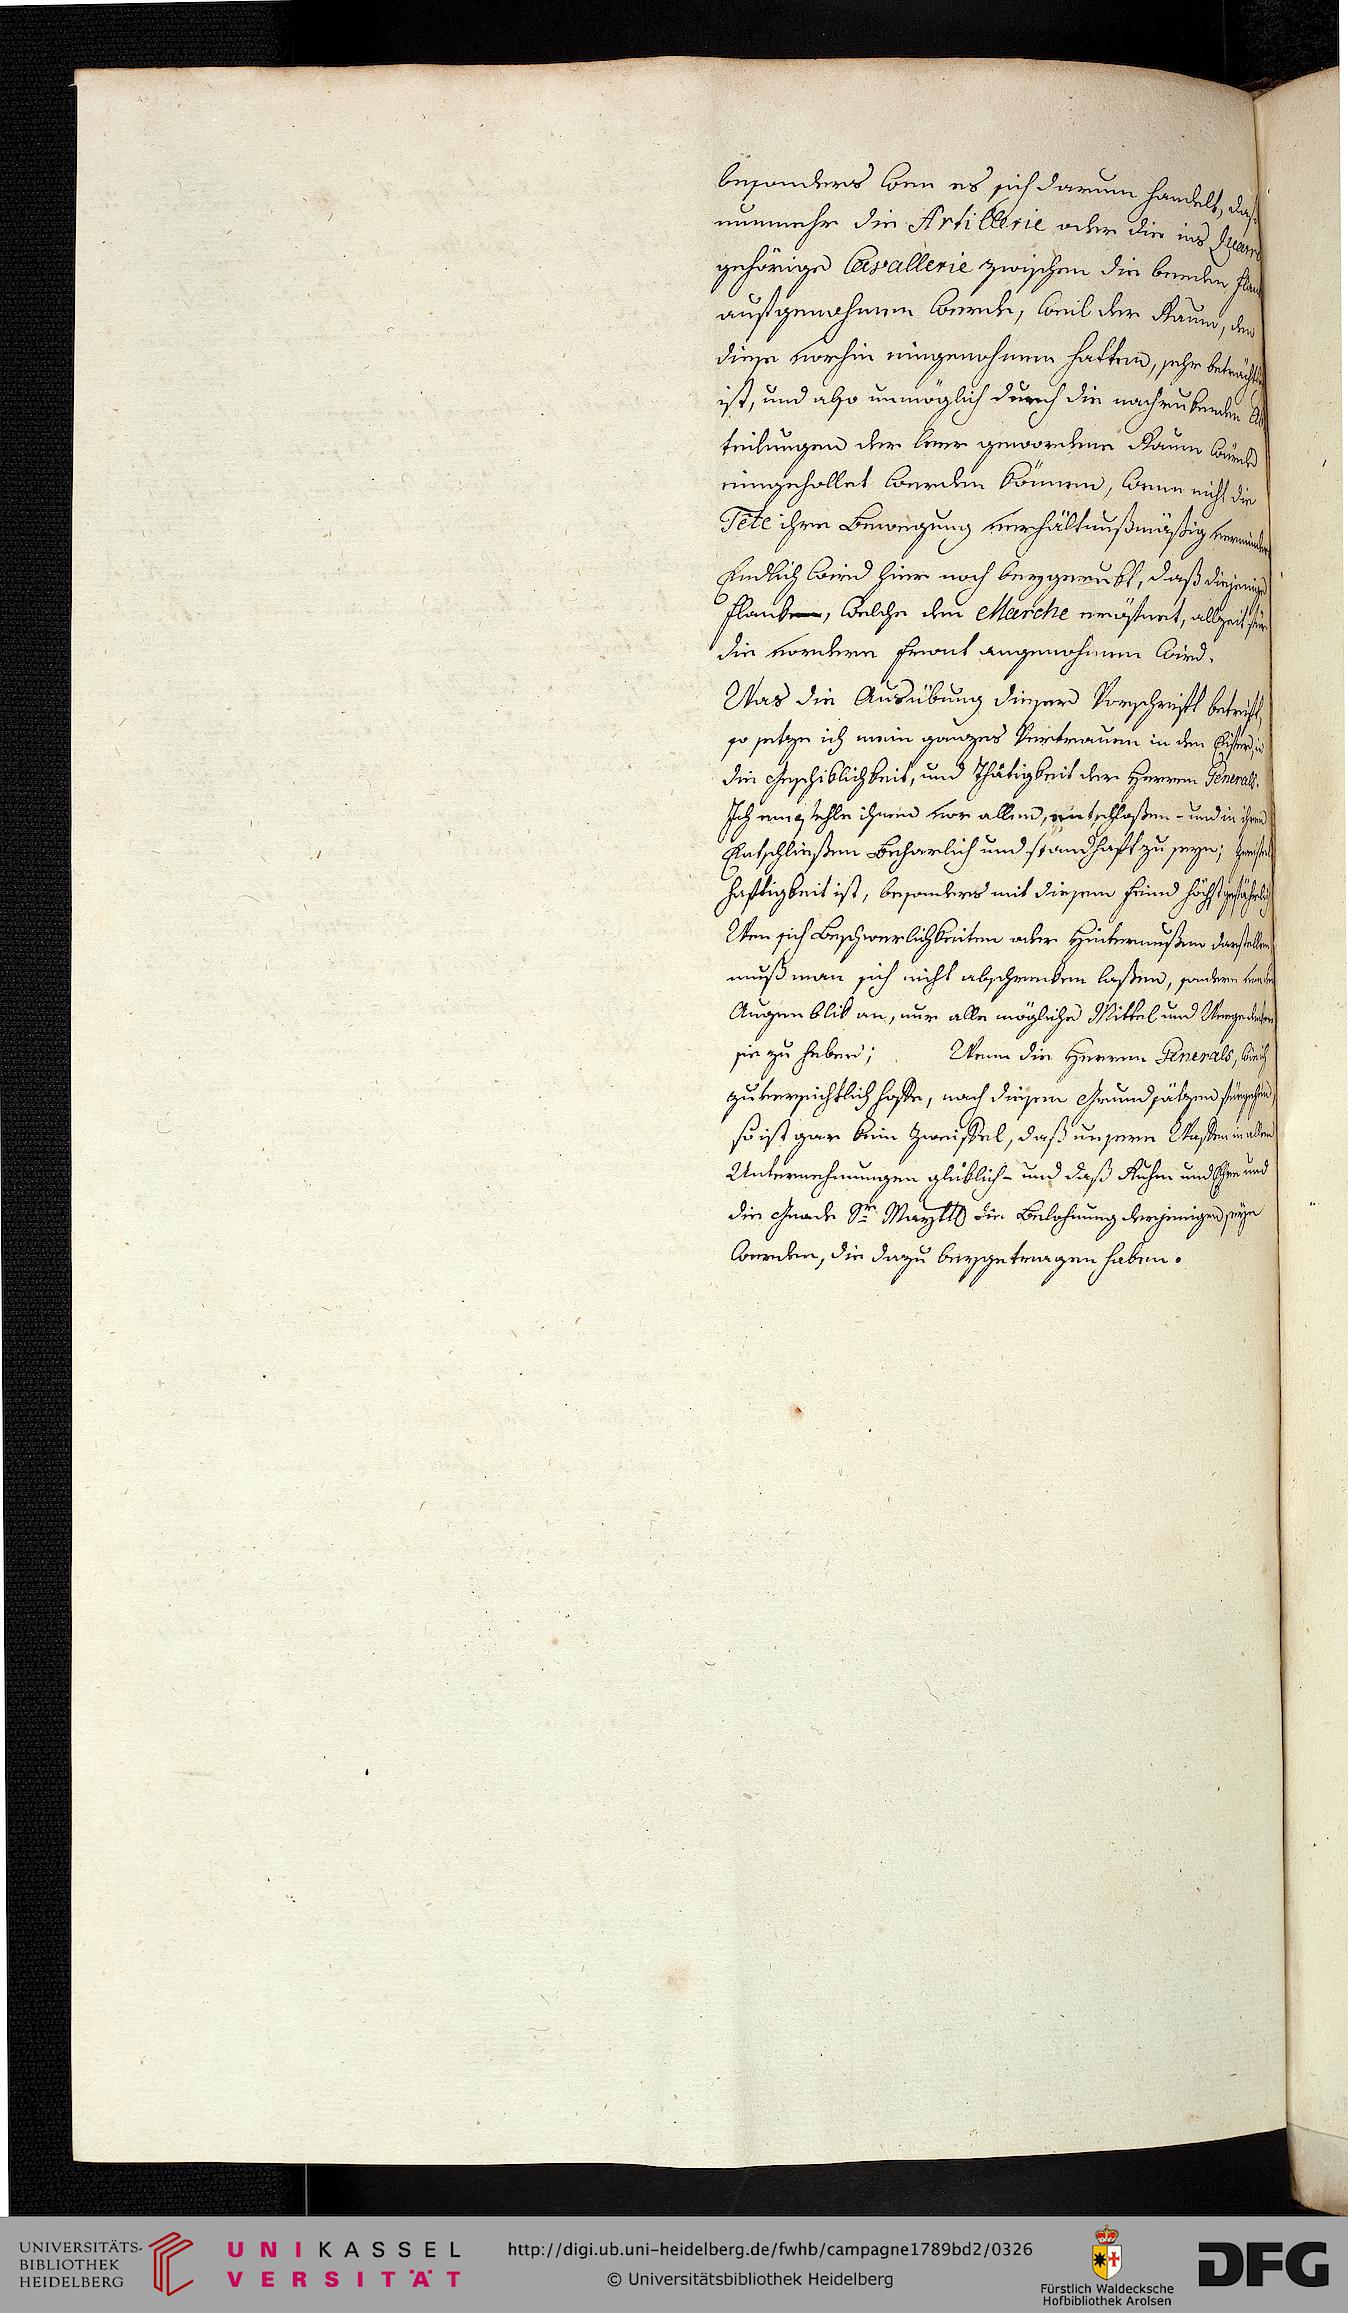 besonders wen es sich darum handelt, daß
nunmehr die Artillerie oder die ins Quarré
gehörige Cavallerie zwischen die beeden
außgenohmen werde, weil der Raum, den
diese vorhin eingenohmen hatten, sehr beträchtlich
ist, und also unmöglich durch die nachrukende Ab
teilungen der leer gewordene Raum würde
eingehollet werden können, wenn nicht die
Tete ihre Bewegung verhältnußmäßig vermindert
Endlich wird hier noch beygerukt, daß diejenige
Flanke, welche den Marche eröffnet, allzeit für
die vordere Front angenohmen wird.
Was die Ausübung dieser Vorschrift betrifft,
so setze ich mein ganzes Vertrauen in den Eifer, in
die Geschiklichkeit, und Thätigkeit der Herren Generals.
Ich empfehle ihnen vor allem, entschloßen - und in ihren
Entschließen Beharlich und standhaft zu seyn; Zweifel
haftigkeit ist, besonders mit diesem Feind höchst gefährlich
Wen sich Beschwerlichkeiten oder Hinternußen darstellen
muß man sich nicht abschreken laßen, sondern von dem
Augenblik an, nur alle mögliche Mittel und Weege denken
sie zu heben; Wenn die Herren Generals, wie ich
zuversichtlich hoffe, nach diesen Grundsätzen fürgehen,
so ist gar kein Zweiffel, daß unsere Waffen in allen
Unternehmungen glüklich - und daß Ruhm und Ehre und
die Gnade Sr Maytt die Belohnung derjenigen seyn
werden, die dazu beygetragen haben.
UNIVERSITÄTS-
BIBLIOTHEK
HEIDELBERG
UNIKASSEL
VERSITÄT
http://digi.ub.uni-heidelberg.de/fwhb/campagne1789bd2/0326
© Universitätsbibliothek Heidelberg
Fürstlich Waldecksche
Hofbibliothek Arolsen
DFG